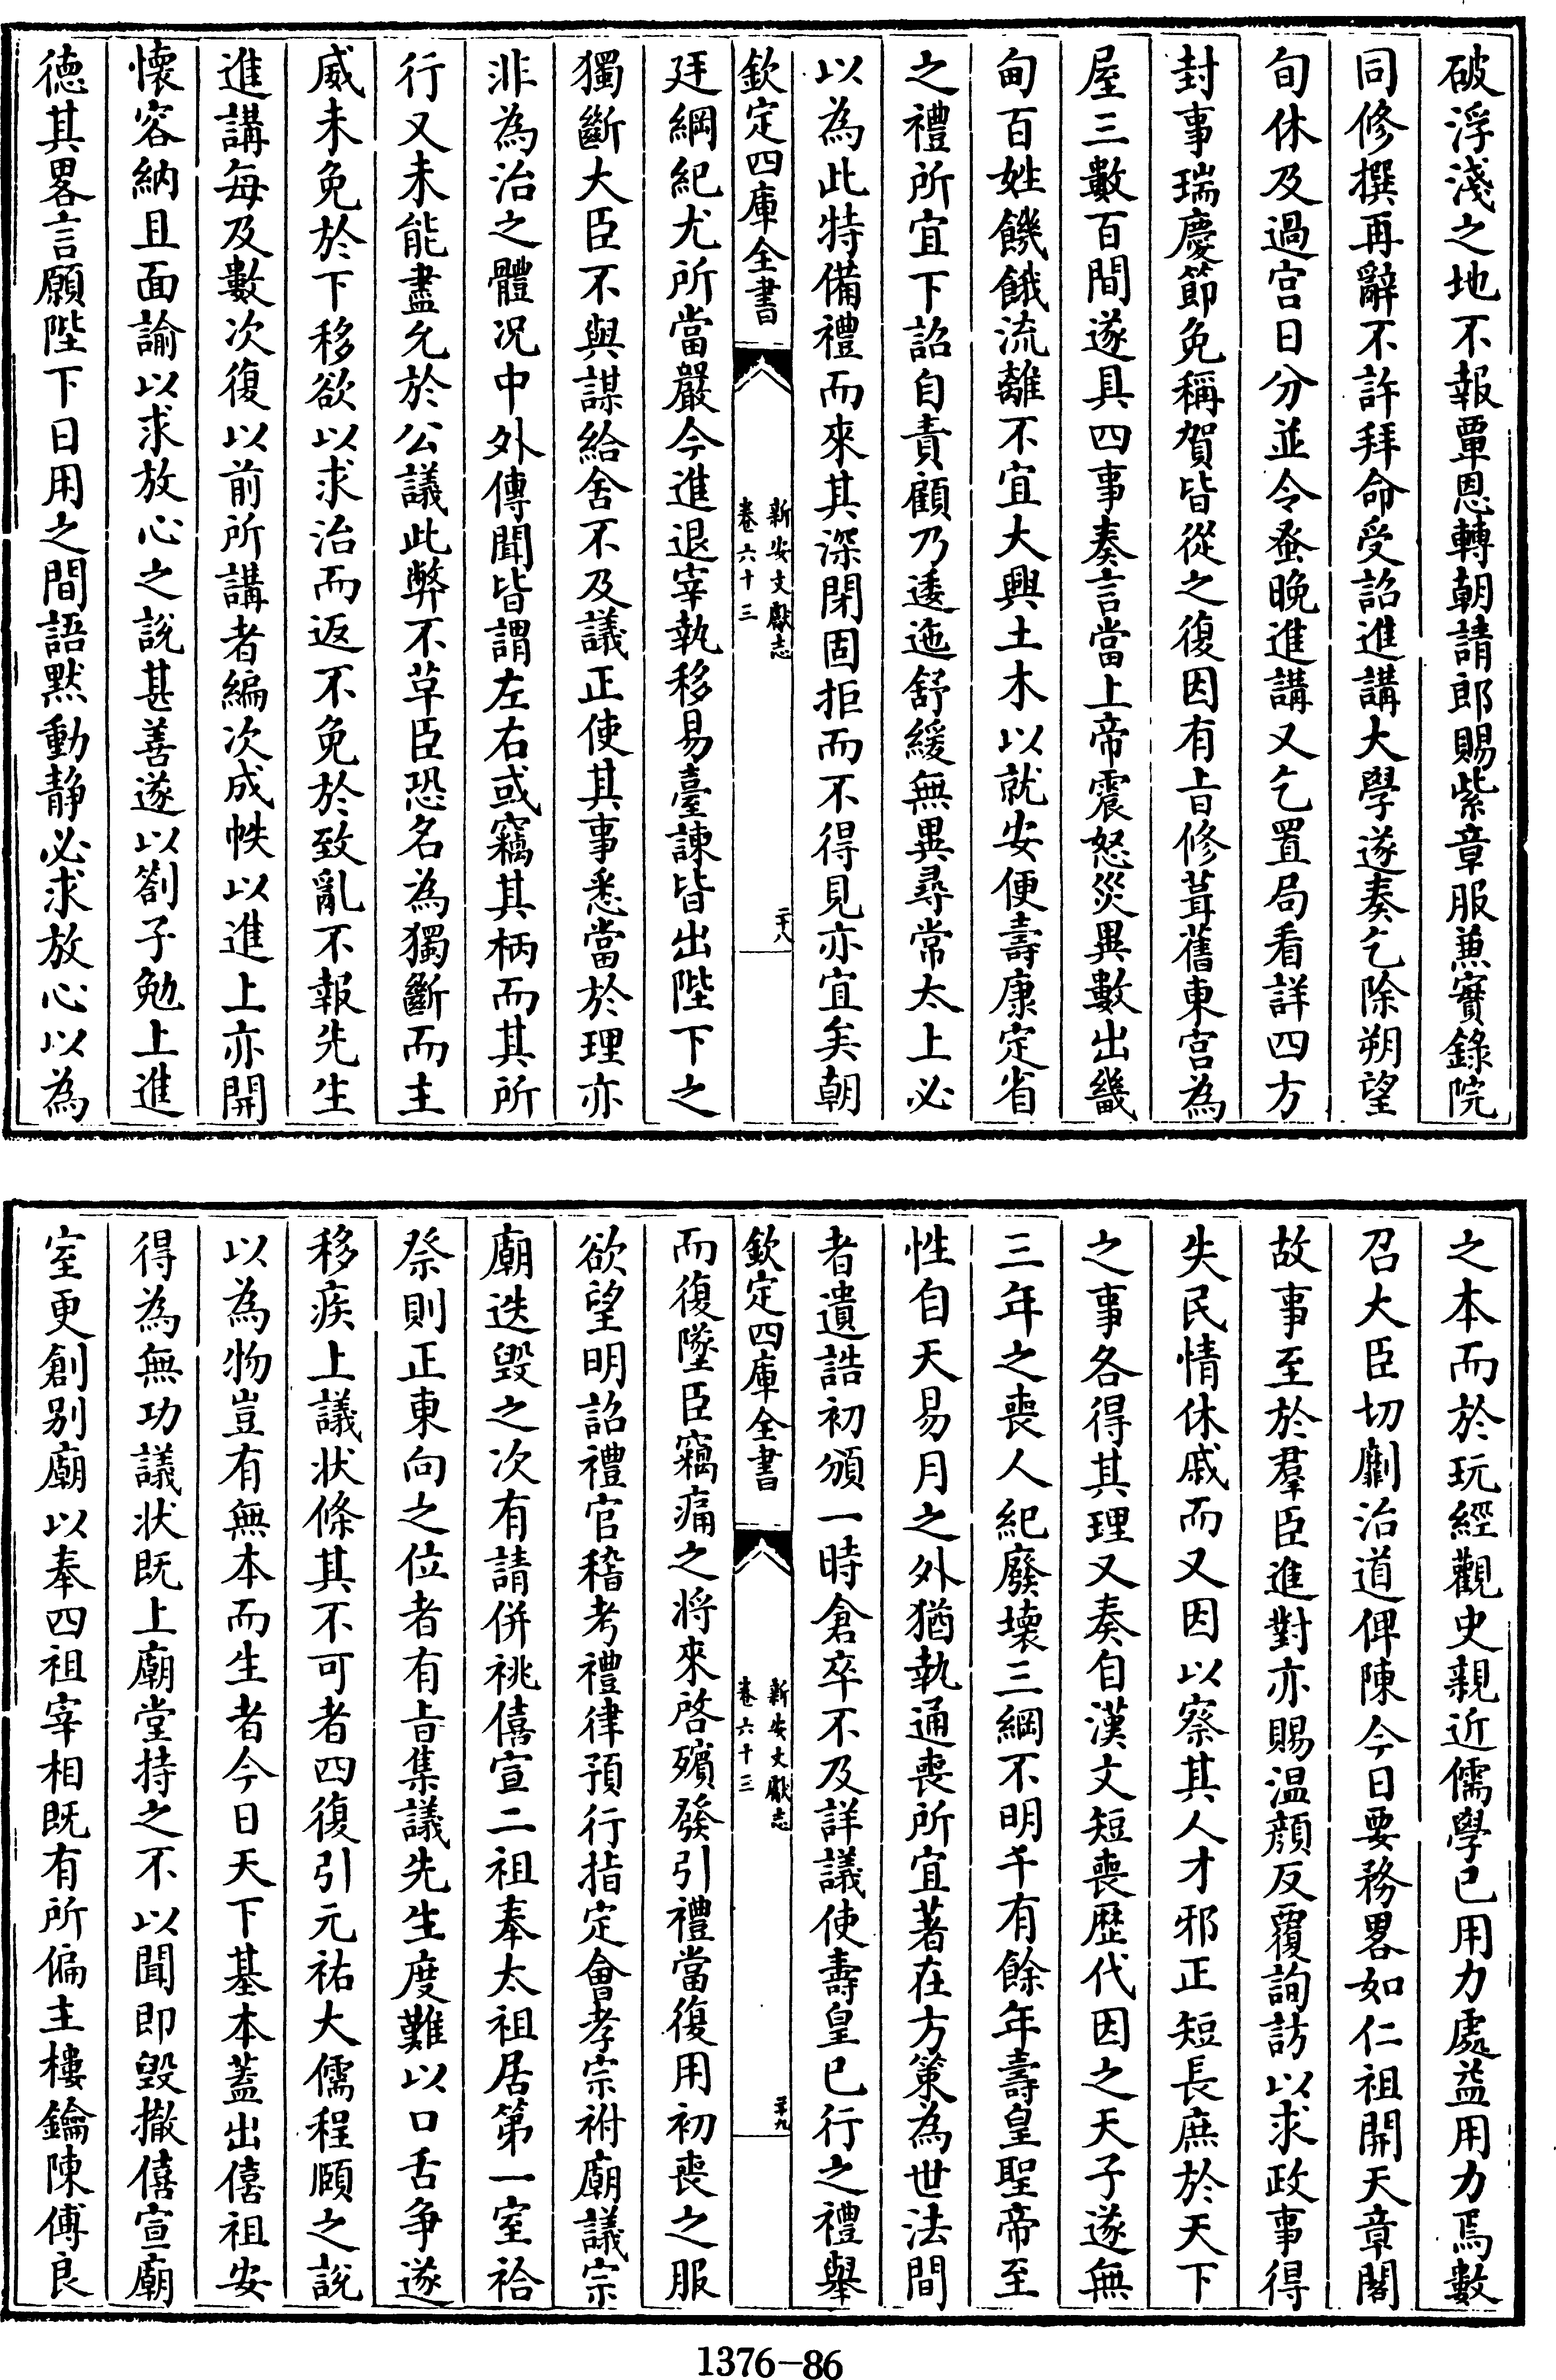 破浮淺之地不報覃恩轉朝請郎賜紫章服兼實錄院
同修撰再辭不許拜命受詔進講大學遂奏乞除朔望
旬休及過宫日分並令蚤晚進講又乞置局看詳四方
封事瑞慶節免稱賀皆從之復因有旨修葺舊東宫為
屋三數百間遂具四事奏言當上帝震怒災異數出畿
甸百姓饑餓流離不宜大興土木以就安便壽康定省
之禮所宜下詔自責顧乃逶迤舒緩無異尋常太上必
以為此特備禮而來其深閉固拒而不得見亦宜矣朝
欽定四庫全書
新安文獻志
卷六十三
二十八
廷綱紀尤所當嚴今進退宰執移易臺諫皆出陛下之
獨斷大臣不與謀給舍不及議正使其事悉當於理亦
非為治之體况中外傳聞皆謂左右或竊其柄而其所
行又未能盡允於公議此弊不革臣恐名為獨斷而主
威未免於下移欲以求治而返不免於致亂不報先生
進講每及數次復以前所講者編次成帙以進上亦開
懷容納且面諭以求放心之說甚善遂以劄子勉上進
德其畧言願陛下日用之間語黙動静必求放心以為
之本而於玩經觀史親近儒學已用力處益用力焉數
召大臣切劘治道俾陳今日要務畧如仁祖開天章閣
故事至於羣臣進對亦賜温顔反覆詢訪以求政事得
失民情休戚而又因以察其人才邪正短長庶於天下
之事各得其理又奏自漢文短喪歷代因之天子遂無
三年之喪人紀廢壞三綱不明千有餘年壽皇聖帝至
性自天易月之外猶執通喪所宜著在方策為世法間
者遺誥初頒一時倉卒不及詳議使壽皇已行之禮舉
欽定四庫全書
新安文獻志
卷六十三
二十九
而復墜臣竊痛之将來啓殯發引禮當復用初喪之服
欲望明詔禮官稽考禮律預行指定會孝宗祔廟議宗
廟迭毁之次有請併祧僖宣二祖奉太祖居第一室祫
祭則正東向之位者有旨集議先生度難以口舌争遂
移疾上議状條其不可者四復引元祐大儒程頤之說
以為物豈有無本而生者今日天下基本蓋出僖祖安
得為無功議状既上廟堂持之不以聞即毁撤僖宣廟
室更創别廟以奉四祖宰相既有所偏主樓鑰陳傅良
1376-86